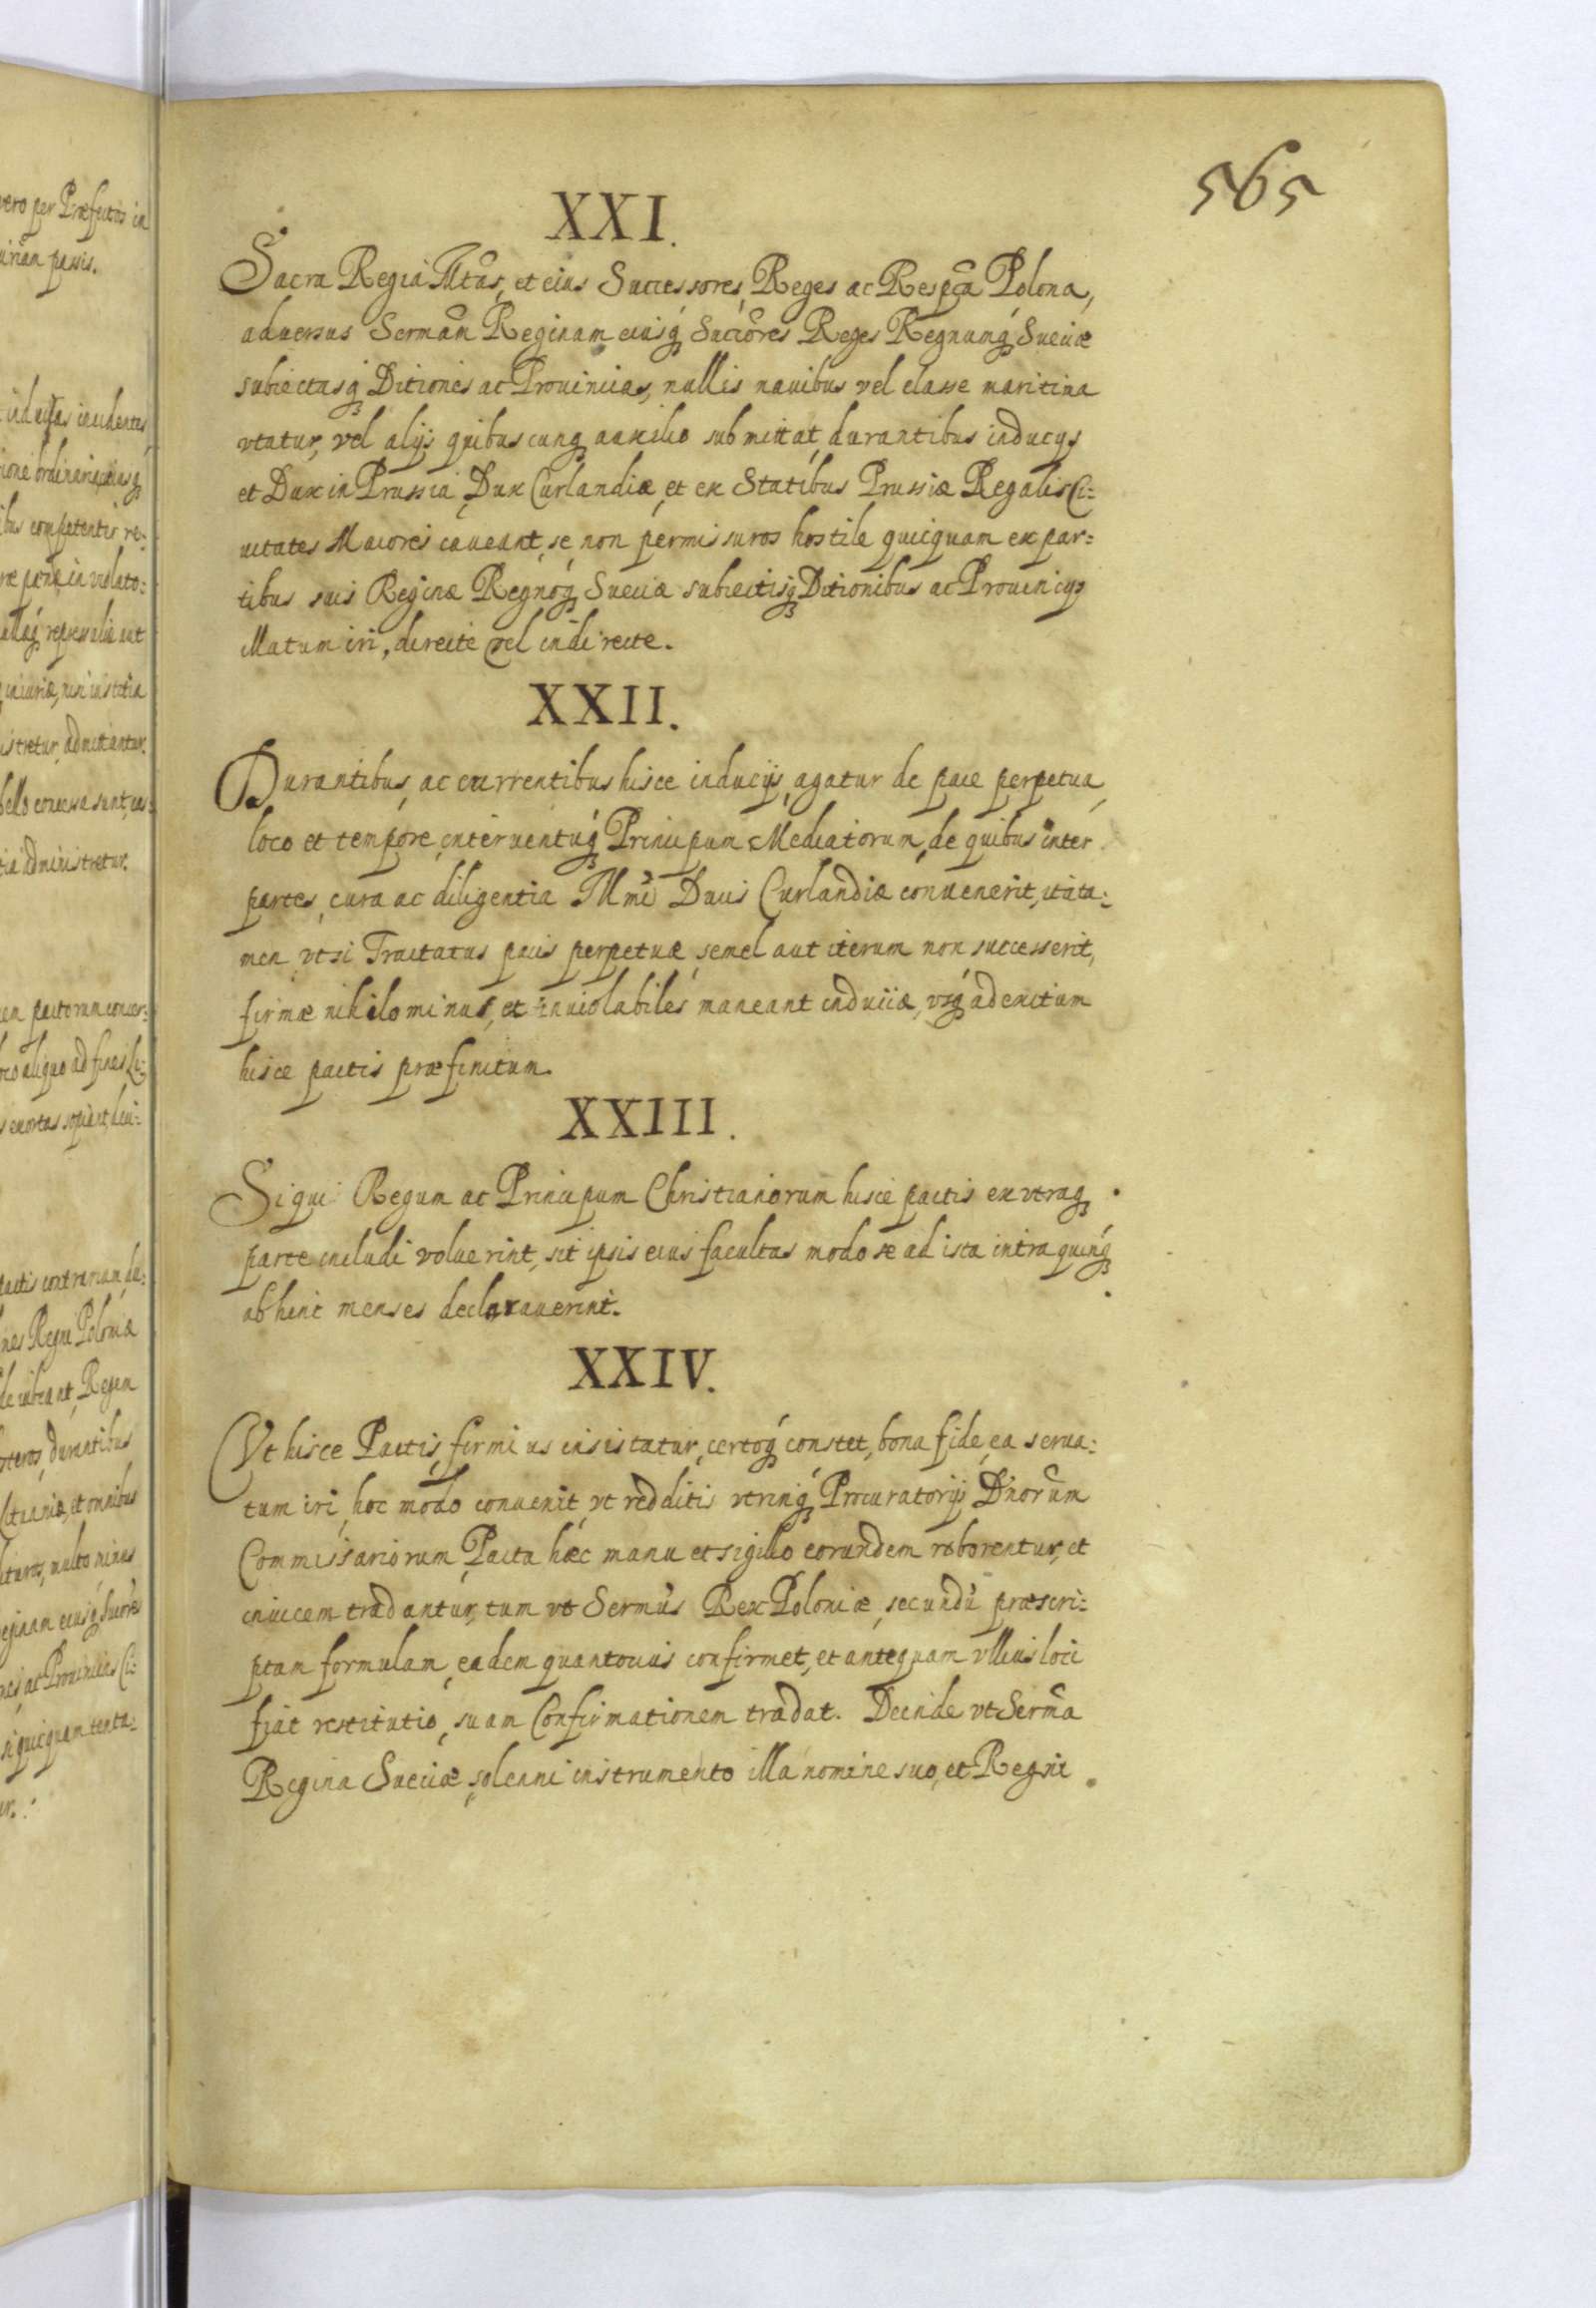 565
XXI.
Sacra Regia Mtas, et eius Successores, Reges ac Respca Polona,
aduersus Sermam Reginam eiusq Succores Reges Regnumq Sueciæ
subiectasq Ditiones ac Prouincias, nullis nauibus vel classe maritima
vtatur, vel alijs quibuscunq auxilio submittat, durantibus inducijs
et Dux in Prussia, Dux Curlandiæ, et ex Statibus Prussiæ Regalis Ci:
uitates Maiores caueant, se non permissuros hostile quicquam ex par:
tibus suis Reginæ Regnoq Sueciæ subiectisq Ditionibus ac Prouincijs
illatum iri, directe vel indirecte.
XXII.
Durantibus, ac currentibus hisce inducijs, agatur de pace perpetua,
loco et tempore, interuentuq Principum Mediatorum, de quibus inter
partes, cura ac diligentia Illmi Ducis Curlandiæ conuenerit, ita ta:
men vt si Tractatus pacis perpetuæ, semel aut iterum non successerit,
firmæ nihilominus, et inuiolabiles maneant induciæ, vsq ad exitum
hisce pactis præfinitum.
XXIII.
Si qui Regum ac Principum Christianorum hisce pactis ex vtraq
parte includi voluerint, sit ipsis eius facultas modo se ad ista intra quinq
abhinc menses declarauerint.
XXIV.
Vt hisce Pactis, firmius insistatur, certoq constet, bona fide, ea serua:
tum iri, hoc modo conuenit, vt redditis vtrinq Procuratorijs Dnorum
Commissariorum, Pacta hæc manu et sigillo eorundem roborentur, et
inuicem tradantur, tum vt Sermus Rex Poloniæ, secundu præscri:
ptam formulam, eadem quantocius confirmet, et antequam vllius loci
fiat restitutio, suam Confirmationem tradat. Deinde vt Serma
Regina Sueciæ, solenni instrumento illa nomine suo, et Regni